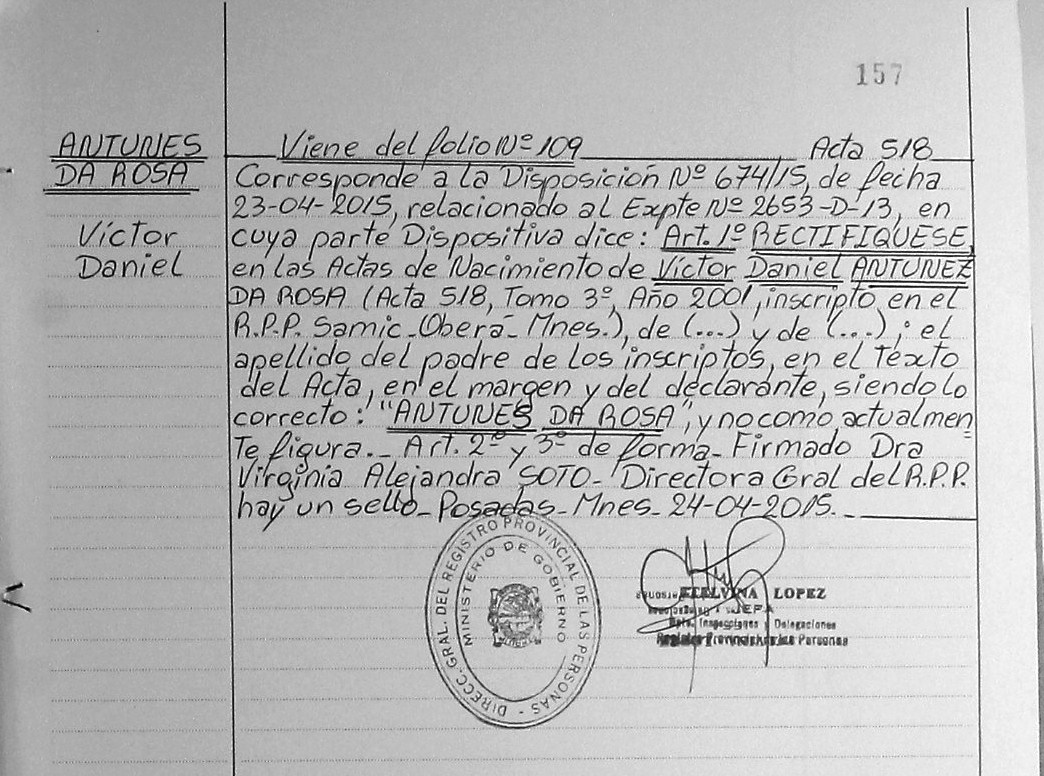 157
ANTUNES
DA ROSA
Víctor
Daniel
Viene del folio Nº 109 Acta 518
Corresponde a la Disposición Nº 674/15, de fecha
23-04-2015, relacionado al Expte Nº 2653-D-13, en
cuya parte Dispositiva dice: "Art. 1º RECTIFIQUESE,
en las Actas de Nacimiento de Víctor Daniel ANTUNEZ
DA ROSA (Acta 518, Tomo 3º, Año 2001, inscripto en el
R.P.P. Samic-Oberá- Mnes.), de (...) y de (...); el
apellido del padre de los inscriptos, en el Texto
del Acta, en el margen y del declarante, siendo lo
correcto: "ANTUNES DA ROSA", y no como actualmen
te figura._ Art. 2º y 3º de forma_ Firmado Dra
Virginia Alejandra SOTO_ Directora Gral del R.P.P.
hay un sello_ Posadas_ Mnes_ 24-04-2015._
DIRECC. GRAL. DEL REGISTRO PROVINCIAL DE LAS PERSONAS -
MINISTERIO DE GOBIERNO
ETELVINA LOPEZ
JEFA
Dpto. Inspecciones y Delegaciones
Registro Provincial de las Personas